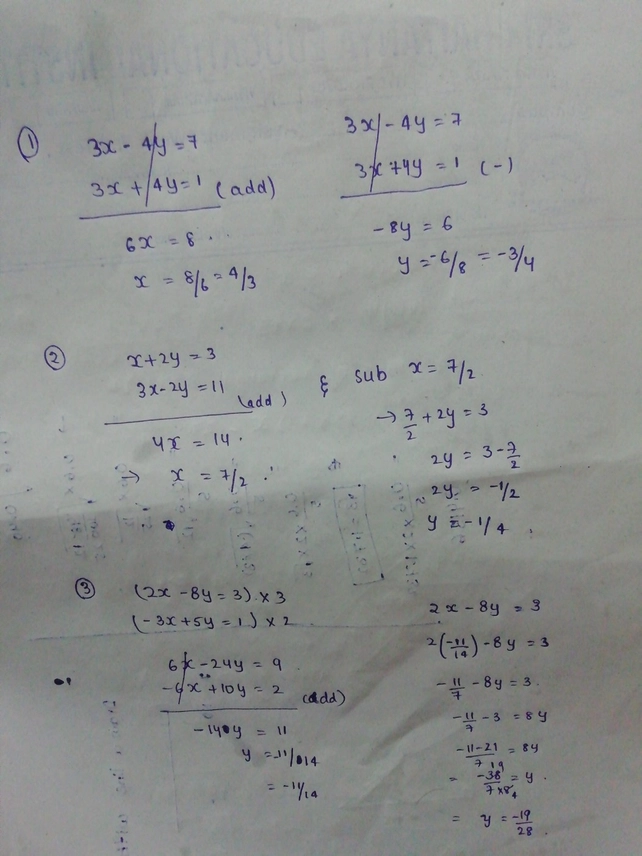 ①
3x - 4y = 7
3x + 4y = 1 (add)
6x = 8 . .
x = 8/6 = 4/3
3x - 4y = 7
3x + 4y = 1 (-)
-8y = 6
y = -6/8 = -3/4
②
x + 2y = 3
3x - 2y = 11 (add)
4x = 14 .
→ x = 7/2 .
& sub x = 7/2
→ 7/2 + 2y = 3
2y = 3 - 7/2
2y = -1/2
y = -1/4 .
③
(2x - 8y = 3) . x 3
(-3x + 5y = 1) x 2
6x - 24y = 9
-6x + 10y = 2 (add)
-14y = 11
y = -11/14
= -11/14
2x - 8y = 3
2(-11/14) - 8y = 3
-11/7 - 8y = 3 .
-11/7 - 3 = 8y
-11-21/7 = 8y
= -38/7x8 = y .
19
4
= y = -19/28 .